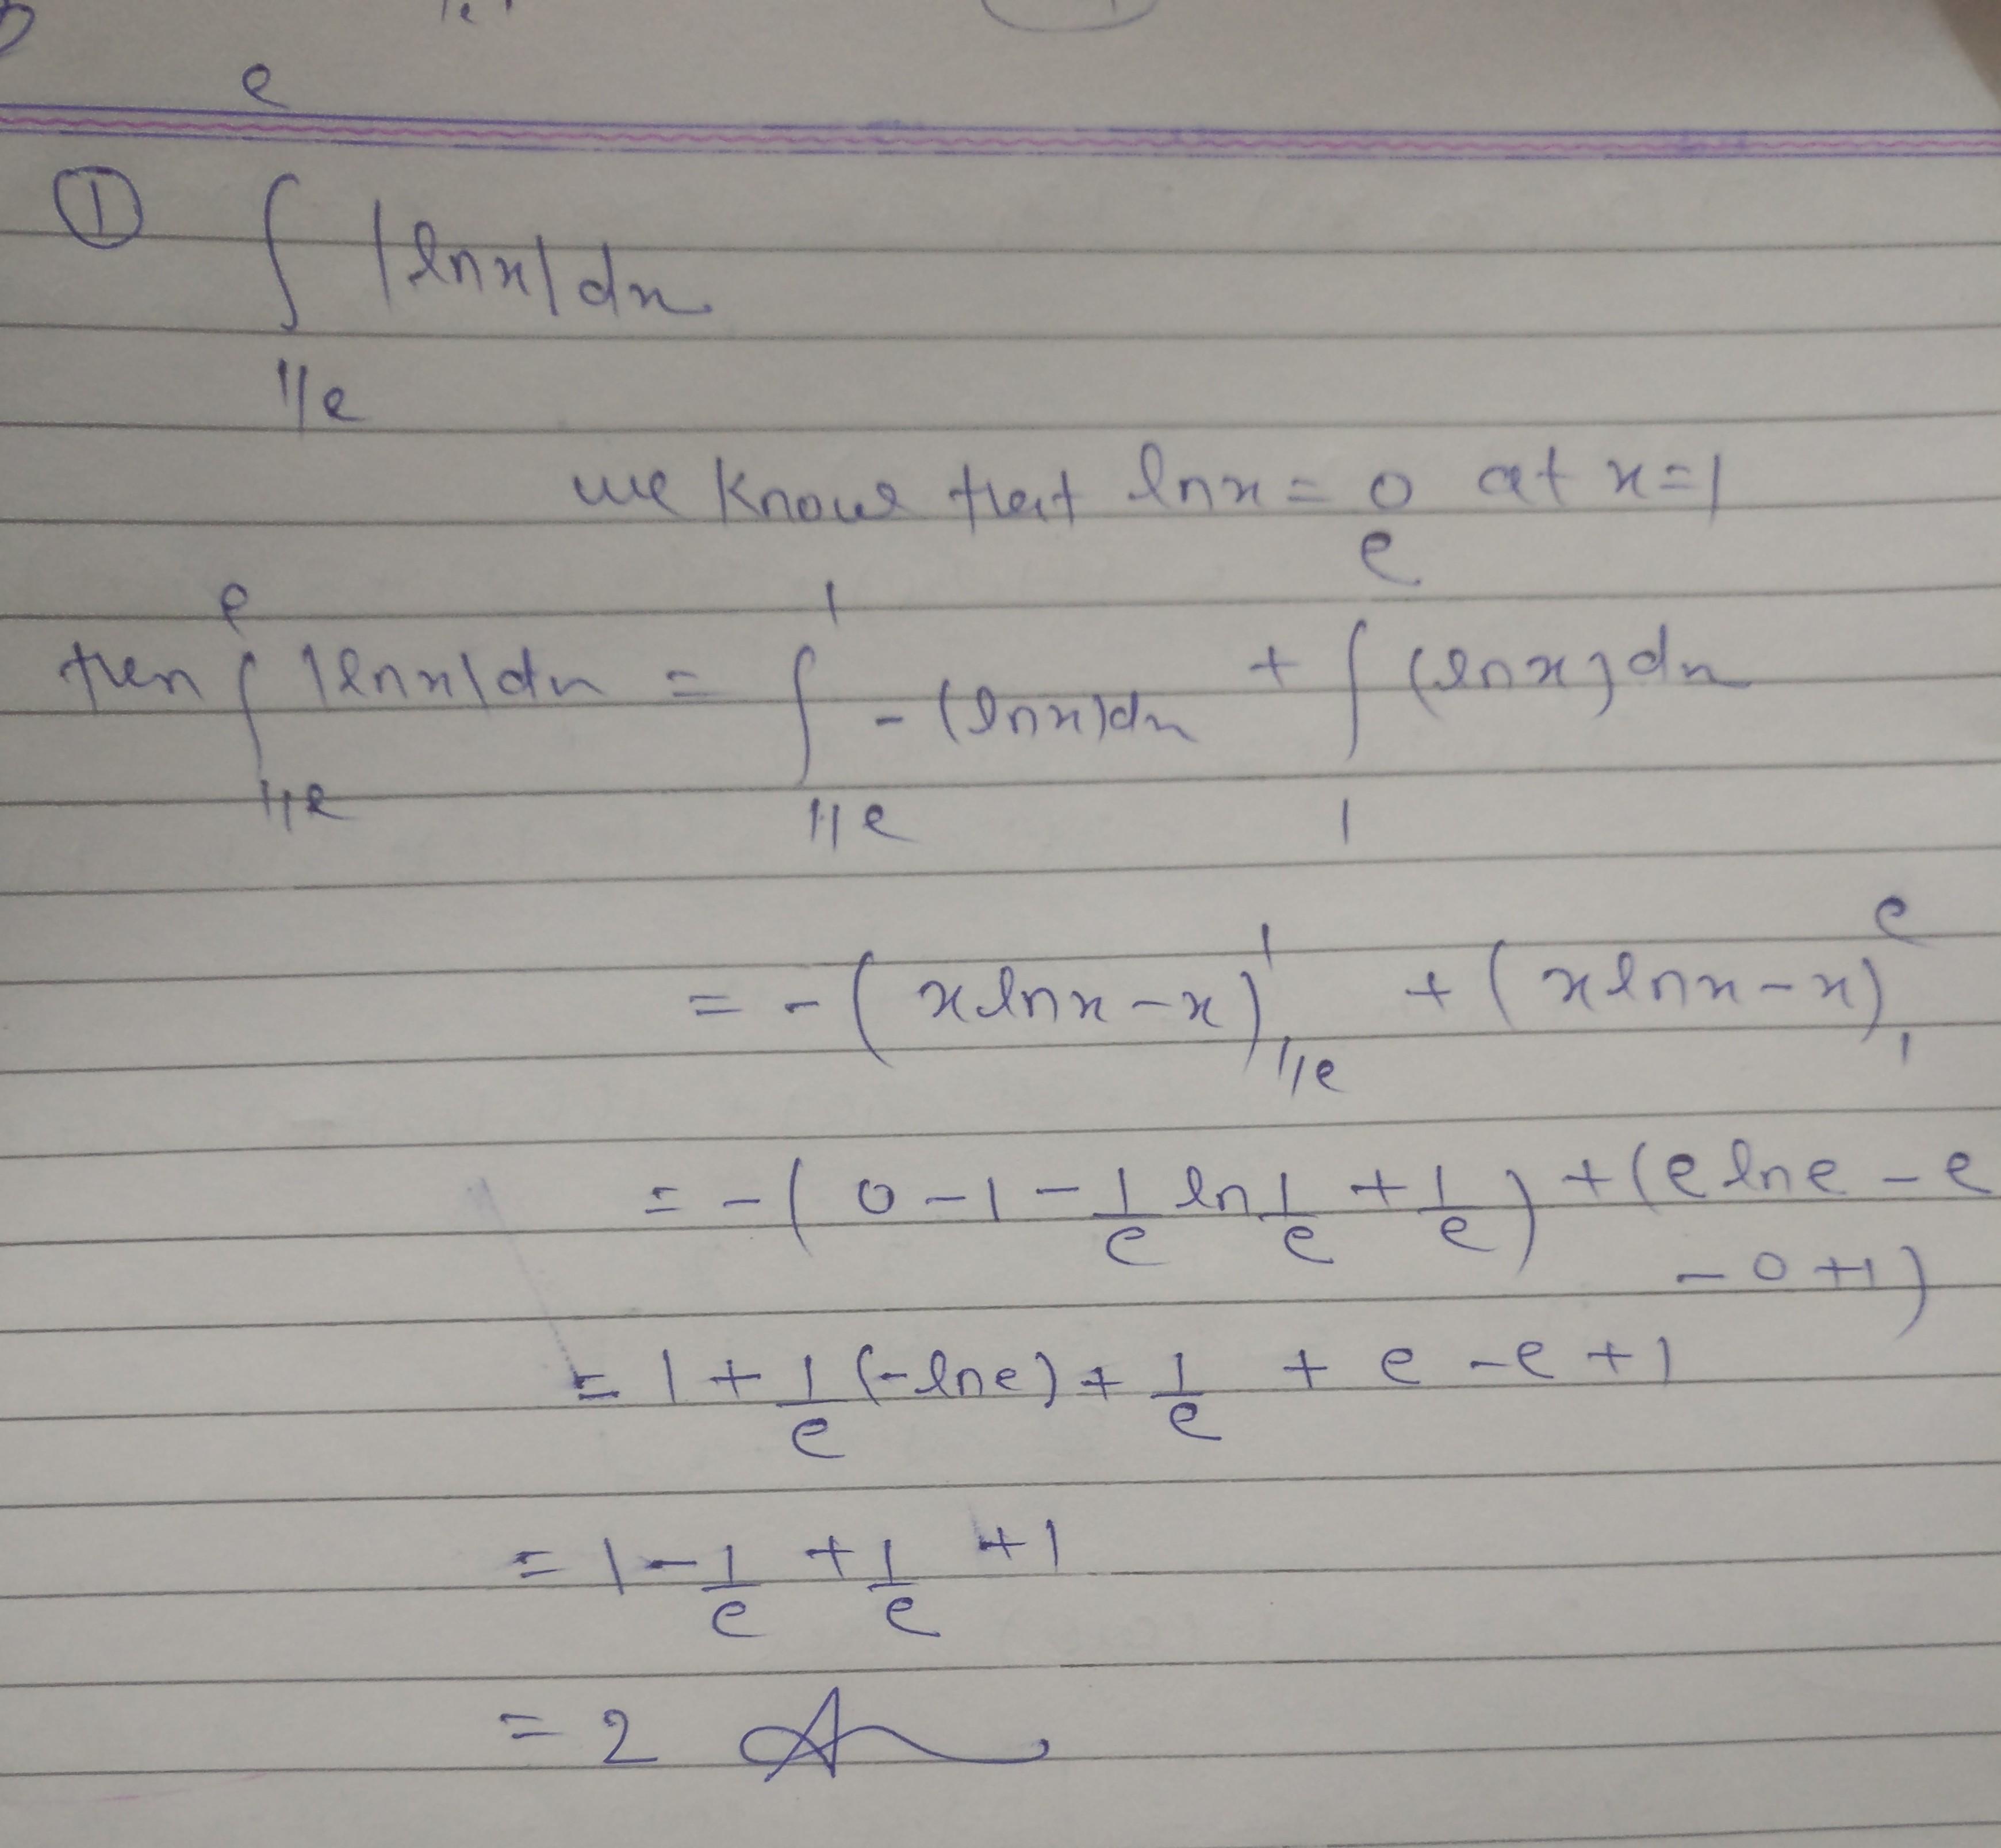 ① ∫_{1/e}^{e} |lnx|dx
we know that lnx = 0 at x=1
then ∫_{1/e}^{e} |lnx|dx = ∫_{1/e}^{1} -(lnx)dx + ∫_{1}^{e} (lnx)dx
= -(xlnx-x)_{1/e}^{1} + (xlnx-x)_{1}^{e}
= -(0-1-1/e ln 1/e + 1/e) + (elne-e
-0+1)
= 1 + 1/e (-lne) + 1/e + e - e + 1
= 1 - 1/e + 1/e + 1
= 2